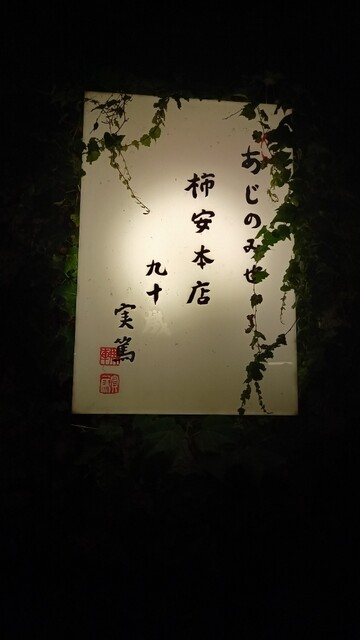 あじのみせ
柿安本店
九十歳
実篤